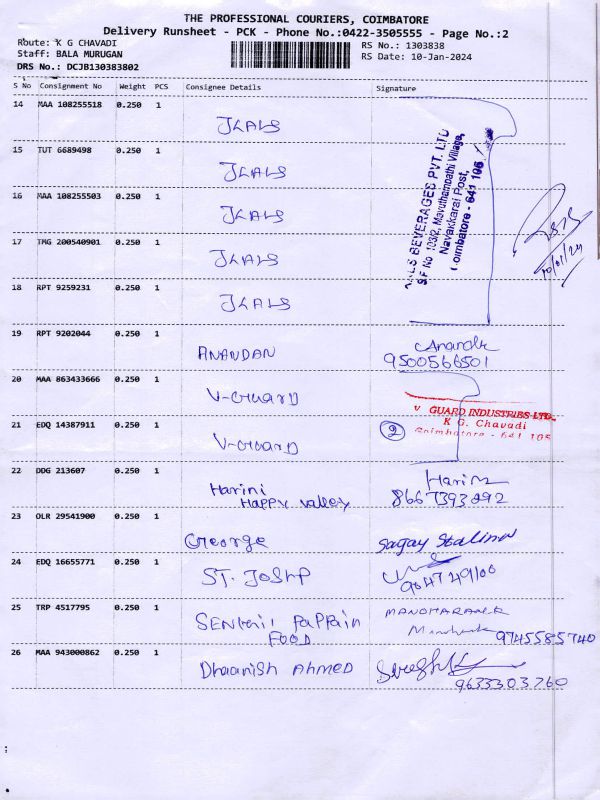 THE PROFESSIONAL COURIERS, COIMBATORE
Delivery Runsheet - PCK - Phone No.:0422-3505555 - Page No.:2
Route: K G CHAVADI
RS No.: 1303838
Staff: BALA MURUGAN
RS Date: 10-Jan-2024
DRS No.: DCJB130383802
S No Consignment No Weight PCS Consignee Details Signature
14 MAA 108255518 0.250 1 JLALS
15 TUT 6689498 0.250 1 JLALS
16 MAA 108255503 0.250 1 JLALS
17 TMG 200540901 0.250 1 JLALS
18 RPT 9259231 0.250 1 JLALS
BEVERAGES PVT. LTD
S.F No 103/2, Mavuthampathi Village,
Navakkarai Post,
Coimbatore - 641 105
10/01/24
19 RPT 9202044 0.250 1 ANANDAN
9500566501
20 MAA 863433666 0.250 1 V-Guard
21 EDQ 14387911 0.250 1 V-Guard
V GUARD INDUSTRIES LTD.
K G. Chavadi
Coimbatore - 641 105
2
22 DDG 213607 0.250 1 Harini
Happy valley
Harini
23 OLR 29541900 0.250 1 George
Sagay Stalin
24 EDQ 16655771 0.250 1
25 TRP 4517795 0.250 1
FOOD
9745585740
26 MAA 943000862 0.250 1 Dhaanish AHMED
9633303760